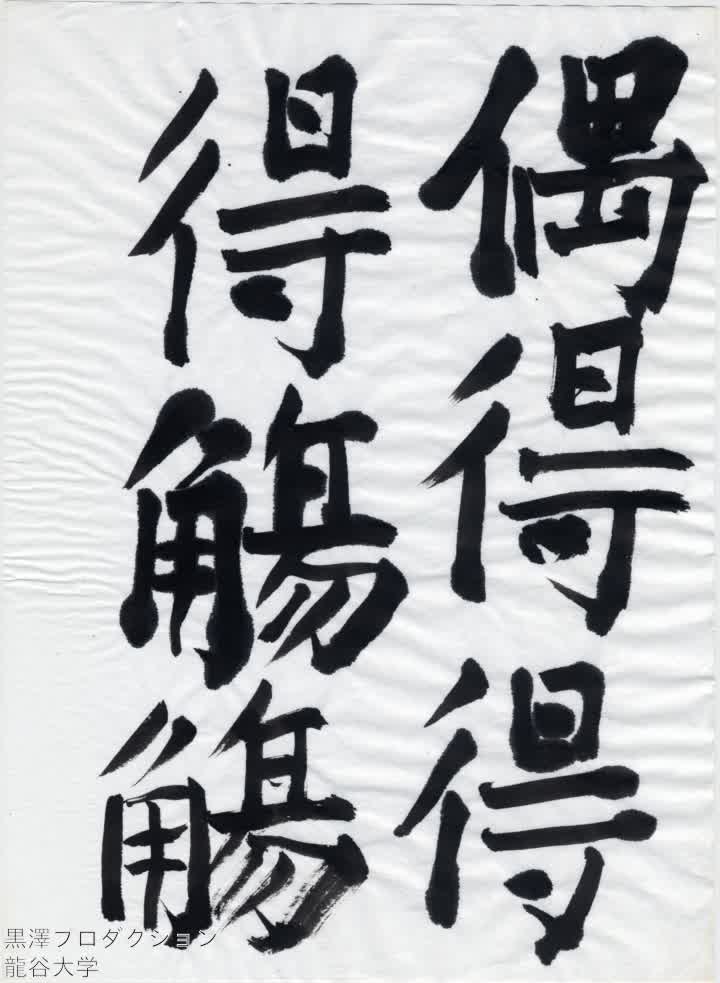 偶得得
得觴觴
黒澤プロダクション
龍谷大学